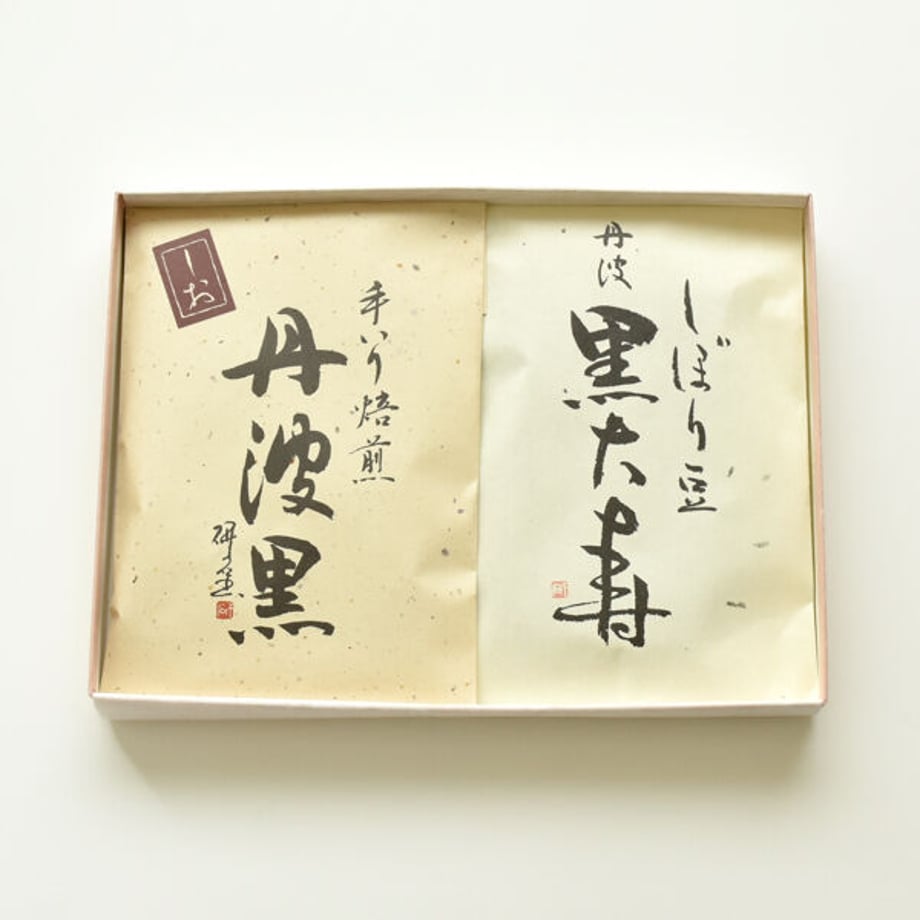 しお
手いり焙煎
丹波黒
しぼり豆
丹波
黒大寿